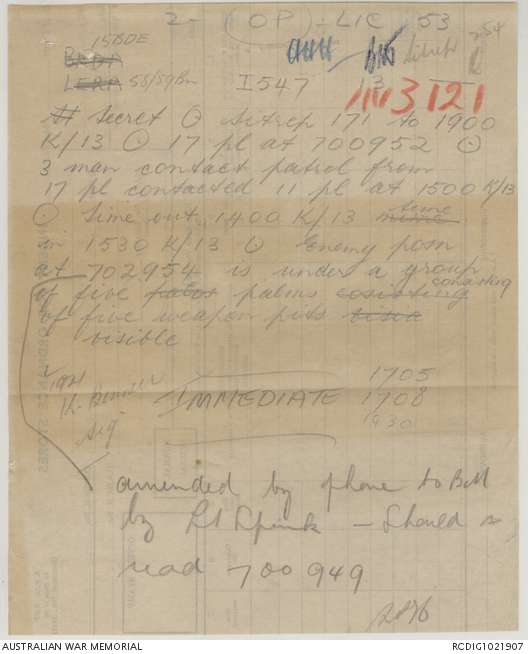 2 - (OP) - LIC 53
254
15 BDE
Sitrep
LERA 58/59 Bn I547 13
3121
## Secret ⊙ Sitrep 171 to 1900
K/13 ⊙ 17 pl at 700952 ⊙
3 man contact patrol from
17 pl contacted 11 pl at 1500 K/13
⊙ Time out 1400 K/13 time
in 1530 K/13 ⊙ Enemy posn
at 702954 is under a group
of five palms cosisting consisting
of five weapon pits
visible
1705
IMMEDIATE 1708
Sig 1930
amended by phone to Bill
by Lt Spink - Should
read 700949
AUSTRALIAN WAR MEMORIAL
RCDIG1021907